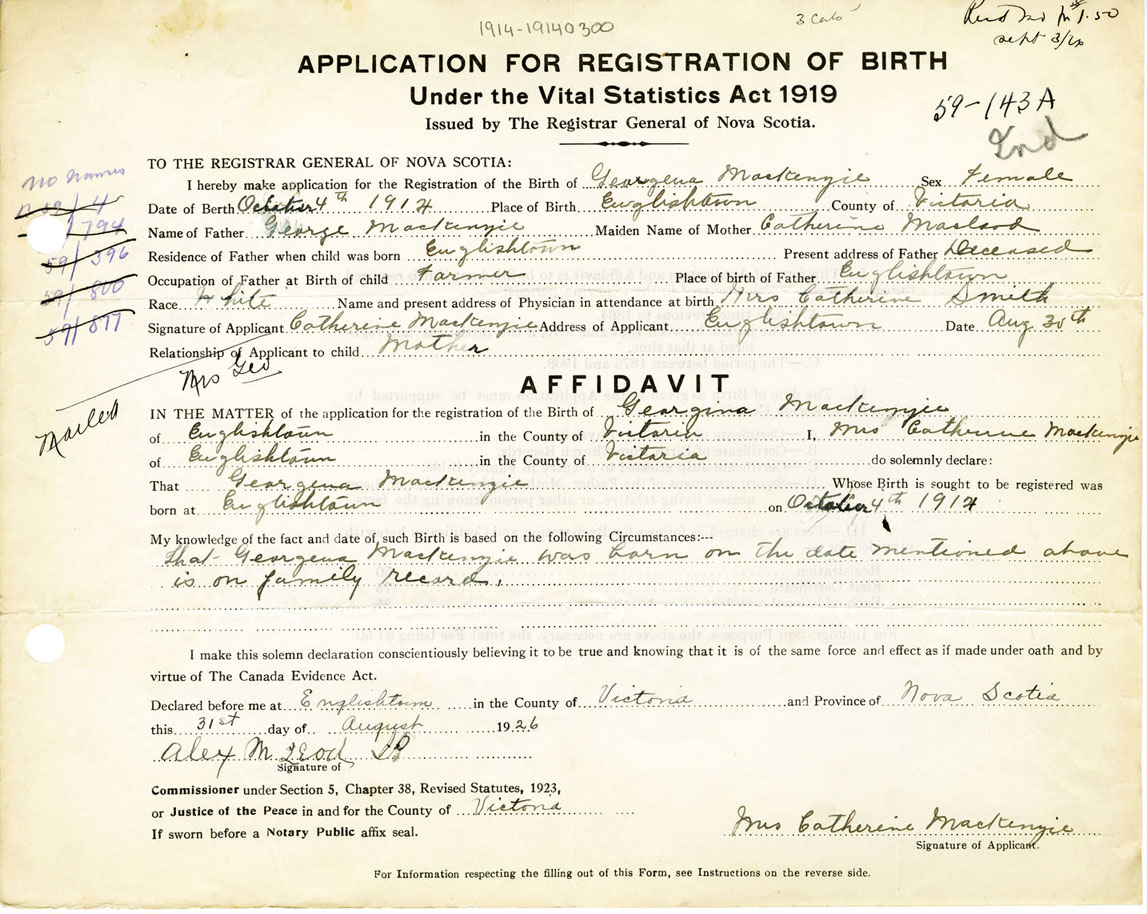 1914-19140300
3 Cato
Recd $1.50
sept 3/26
APPLICATION FOR REGISTRATION OF BIRTH
Under the Vital Statistics Act 1919
59-143A
Issued by The Registrar General of Nova Scotia.
Ind
TO THE REGISTRAR GENERAL OF NOVA SCOTIA:
no names
I hereby make application for the Registration of the Birth of Georgena Mackenzie Sex Female
Date of Berth October 4th 1914 Place of Birth Englishtown County of Victoria
794
Name of Father George Mackenzie Maiden Name of Mother Catherine Macleod
59/396
Residence of Father when child was born Englishtown Present address of Father Deceased
59/800
Occupation of Father at Birth of child Farmer Place of birth of Father Englishtown
Race White Name and present address of Physician in attendance at birth Mrs Catherine Smith
59/877
Signature of Applicant Catherine Mackenzie Address of Applicant Englishtown Date Aug 30th
Relationship of Applicant to child Mother
Mrs Geo
AFFIDAVIT
Mailed
IN THE MATTER of the application for the registration of the Birth of Georgina Mackenzie
of Englishtown in the County of Victoria I, Mrs Catherine Mackenzie
of Englishtown in the County of Victoria do solemnly declare:
That Georgena Mackenzie Whose Birth is sought to be registered was
born at Englishtown on October 4th 1914
My knowledge of the fact and date of such Birth is based on the following Circumstances:---
that Georgena Mackenzie was born on the date mentioned above
is on family record.
I make this solemn declaration conscientiously believing it to be true and knowing that it is of the same force and effect as if made under oath and by
virtue of The Canada Evidence Act.
Declared before me at Englishtown in the County of Victoria and Province of Nova Scotia
this 31st day of August 1926
Alex McLeod JP
Signature of
Commissioner under Section 5, Chapter 38, Revised Statutes, 1923,
or Justice of the Peace in and for the County of Victoria
If sworn before a Notary Public affix seal.
Mrs Catherine Mackenzie
Signature of Applicant.
For Information respecting the filling out of this Form, see Instructions on the reverse side.